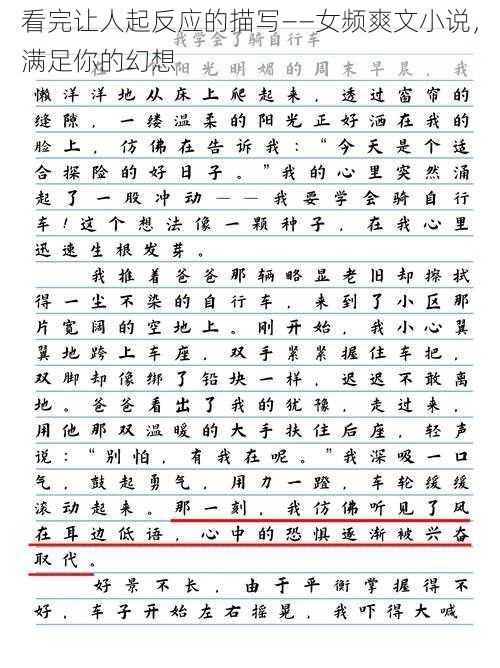 看完让人起反应的描写——女频爽文小说，
我学会了骑自行车
满足你的幻想
在一个阳光明媚的周末早晨，我
懒洋洋地从床上爬起来，透过窗帘的
缝隙，一缕温柔的阳光正好洒在我的
脸上，仿佛在告诉我：“今天是个适
合探险的好日子。”我的心里突然涌
起了一股冲动——我要学会骑自行
车！这个想法像一颗种子，在我心里
迅速生根发芽。
我推着爸爸那辆略显老旧却擦拭
得一尘不染的自行车，来到了小区那
片宽阔的空地上。刚开始，我小心翼
翼地跨上车座，双手紧紧握住车把，
双脚却像绑了铅块一样，迟迟不敢离
地。爸爸看出了我的犹豫，走过来，
用他那双温暖的大手扶住后座，轻声
说：“别怕，有我在呢。”我深吸一口
气，鼓起勇气，用力一蹬，车轮缓缓
滚动起来。那一刻，我仿佛听见了风
在耳边低语，心中的恐惧逐渐被兴奋
取代。
好景不长，由于平衡掌握得不
好，车子开始左右摇晃，我吓得大喊